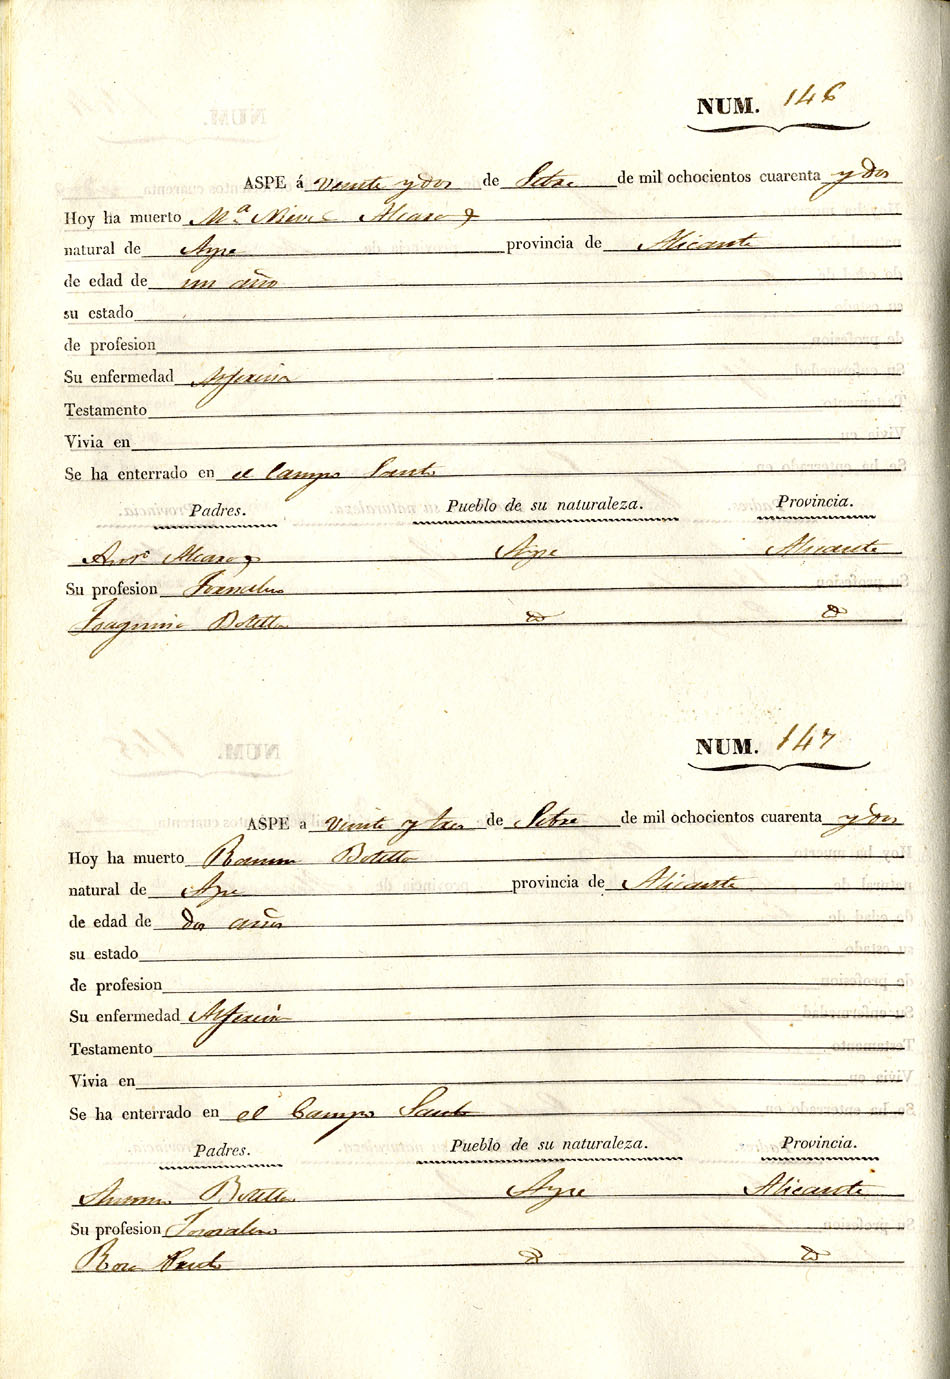 NUM. 146
ASPE á veinte y dos de Setre de mil ochocientos cuarenta y dos
Hoy ha muerto Mª Nieves
natural de Aspe provincia de Alicante
de edad de un año
su estado
de profesion
Su enfermedad Alferecia
Testamento
Vivia en
Se ha enterrado en el Campo Santo
Padres. Pueblo de su naturaleza. Provincia.
Antº Aspe Alicante
Su profesion Jornalero
Joaquina Botella D D
NUM. 147
ASPE a veinte y tres de Setre de mil ochocientos cuarenta y dos
Hoy ha muerto Ramon Botella
natural de Aspe provincia de Alicante
de edad de dos años
su estado
de profesion
Su enfermedad Alferecia
Testamento
Vivia en
Se ha enterrado en el Campo Santo
Padres. Pueblo de su naturaleza. Provincia.
Antonio Botella Aspe Alicante
Su profesion Jornalero
Rosa D D